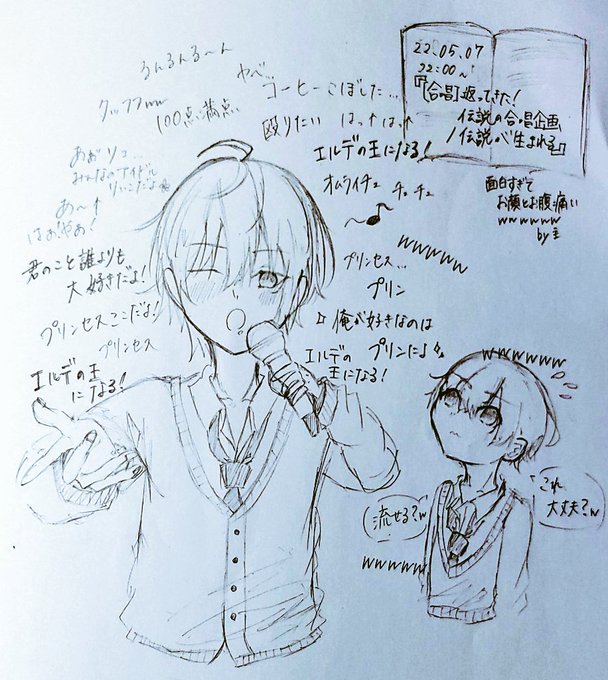 22.05.07
22:00〜
『【合唱】返ってきた!
伝説の合唱企画
/伝説が生まれる』
面白すぎて
お顔とお腹痛い
wwwwww
by主
るんるんる〜ん
ヤベ…
コーヒーこぼした…
100点満点
殴りたい はっ↑はっ↑
エルデの王になる!
オムライチュ チュッチュ
〜♪
wwwww
みんなのアイドル
あ〜↑
はぁ!やあ!
君のこと誰よりも
大好きだよ!
プリンセスここだよ!
プリンセス
エルデの王
になる!
プリンセス…
プリン
俺が好きなのは
プリンだよ
エルデの
王になる!
wwwwww
これ
大丈夫?w
流せる?w
wwwww